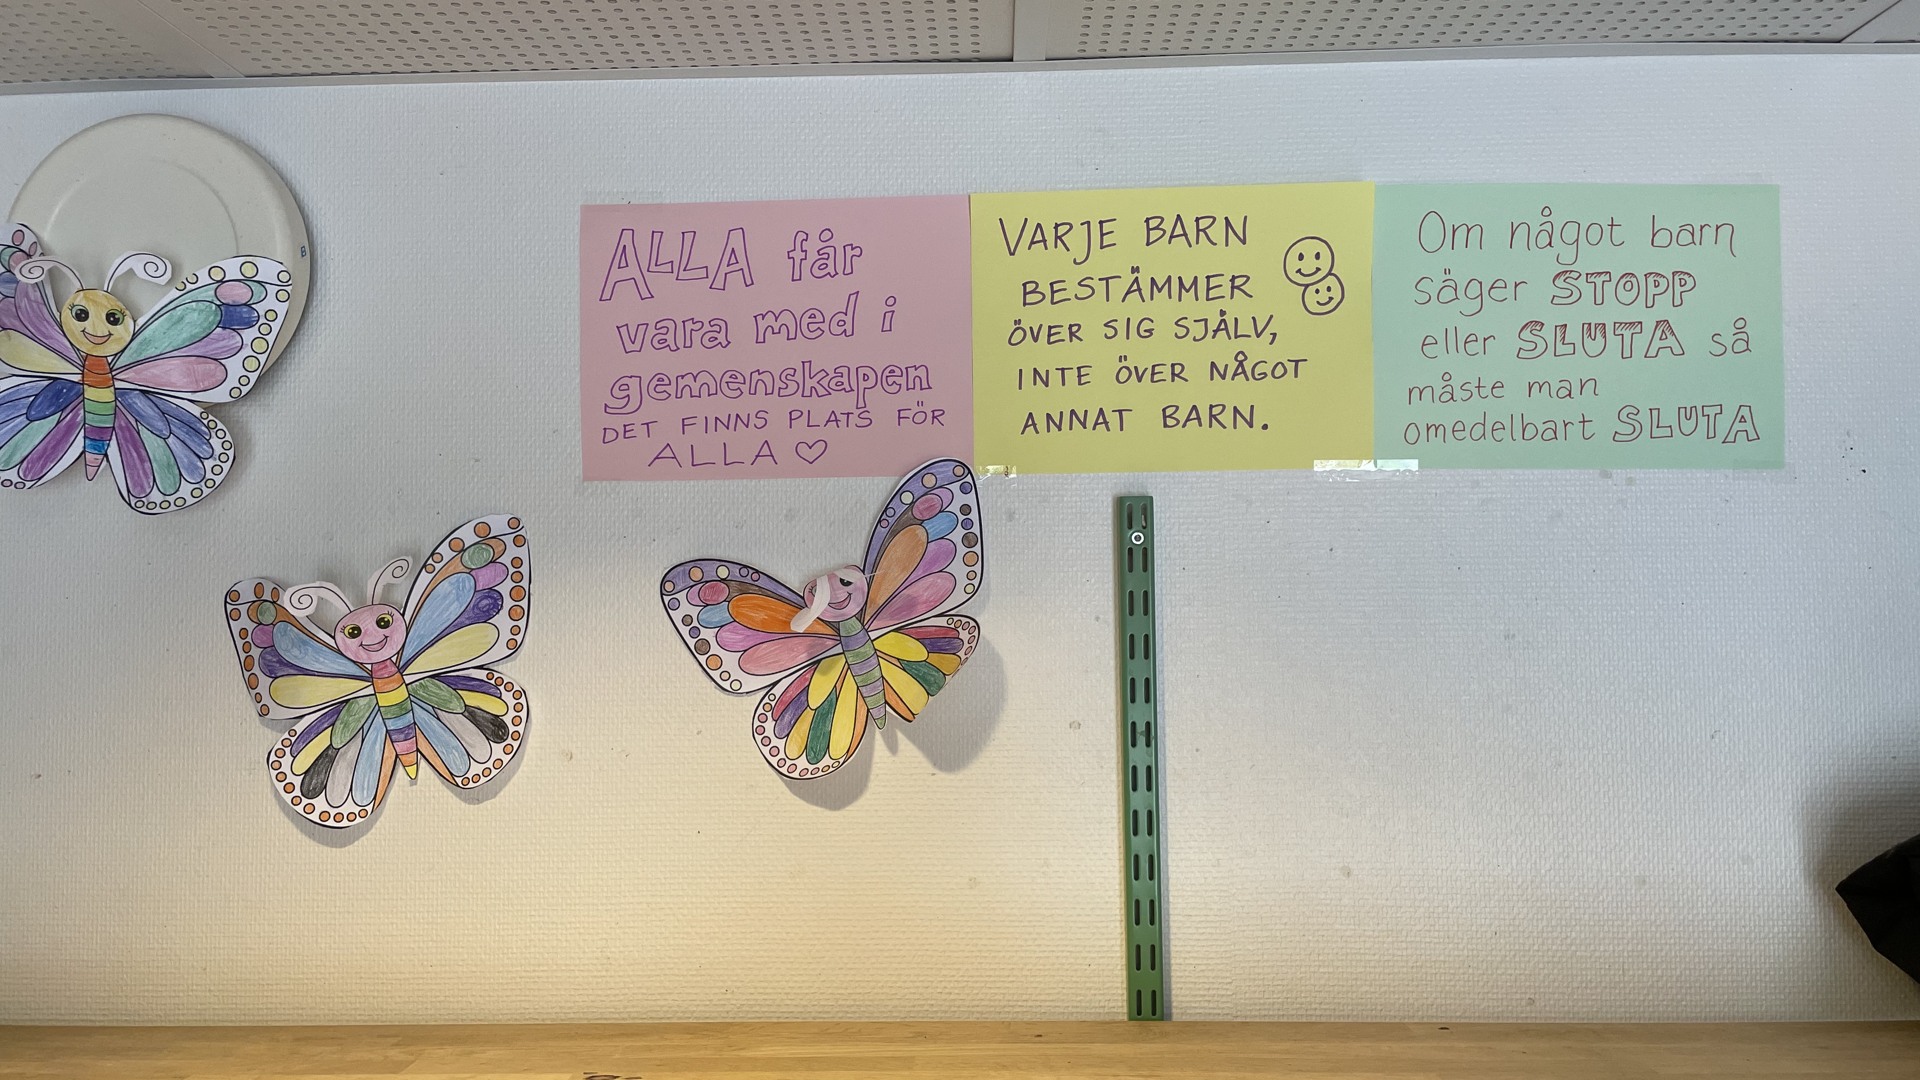 ALLA får
vara med i
gemenskapen
DET FINNS PLATS FÖR
ALLA ♡
VARJE BARN
BESTÄMMER
ÖVER SIG SJÄLV,
INTE ÖVER NÅGOT
ANNAT BARN.
Om något barn
säger STOPP
eller SLUTA så
måste man
omedelbart SLUTA